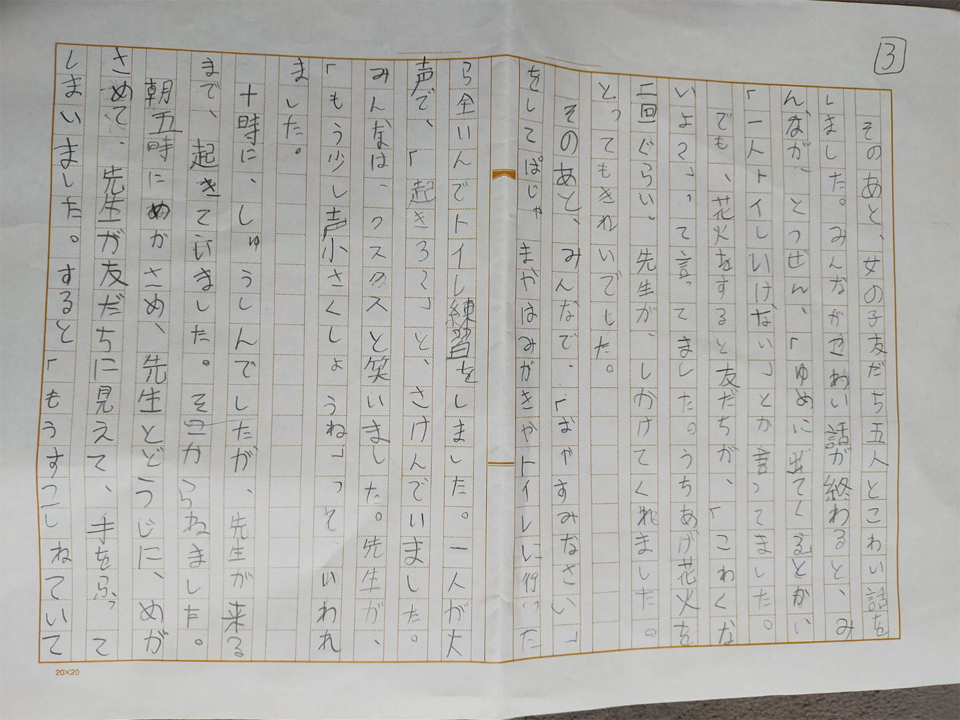 3
そのあと、女の子友だち五人とこわい話を
しました。みんながこわい話が終わると、み
んなが、とつぜん、「ゆめに出てくるとかい
「一人トイレいけない」とか言ってました。
でも、花火をすると友だちが、「こわくな
いよ〜」って言ってました。うちあげ花火を
二回ぐらい、先生が、しかけてくれました。
とってもきれいでした。
そのあと、みんなで、「おやすみなさい」
をしてぱじゃまやはみがきやトイレに行った
ら全いんでトイレ練習をしました。一人が大
声で、「起きろ〜」と、さけんでいました。
みんなは、クスクスと笑いました。先生が、
「もう少し声小さくしょうね」って、いわれ
ました。
十時に、しゅうしんでしたが、先生が来る
まで、起きていました。そのからねました。
朝五時にめがさめ、先生とどうじに、めが
さめて、先生が友だちに見えて、手をふって
しまいました。すると「もうすこしねていて
20×20